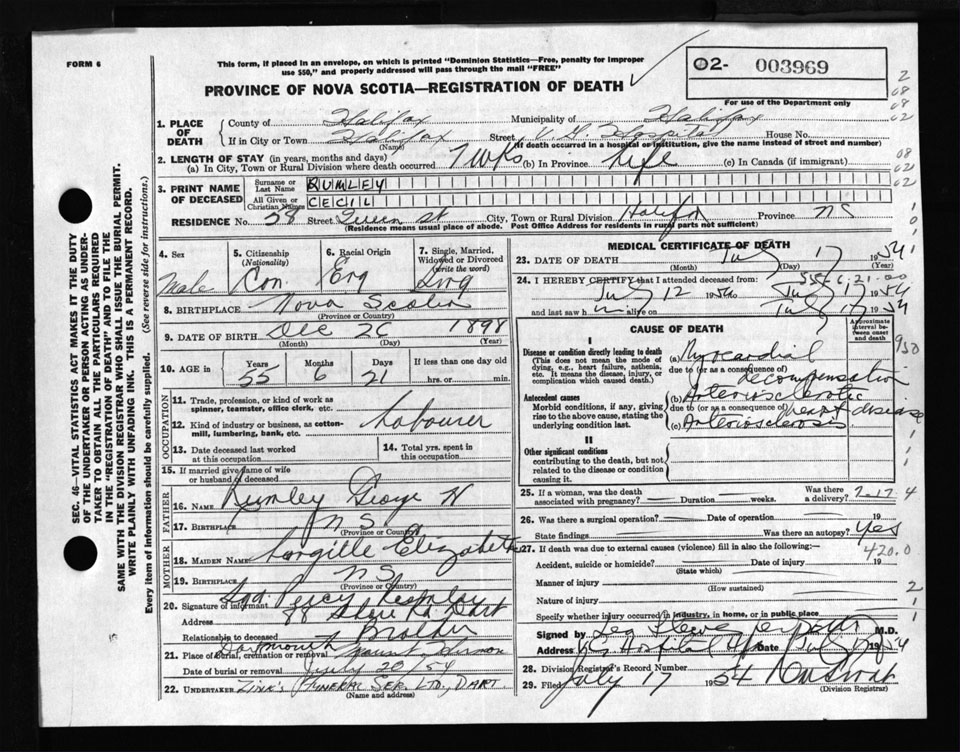 FORM 6
This form, if placed in an envelope, on which is printed "Dominion Statistics—Free, penalty for improper
use $50," and properly addressed will pass through the mail "FREE"
O2- 003969
For use of the Department only
PROVINCE OF NOVA SCOTIA—REGISTRATION OF DEATH
1. PLACE OF DEATH
County of Halifax Municipality of Halifax
If in City or Town Halifax Street V.G. Hospital House No.
(Name) (If death occurred in a hospital or institution, give the name instead of street and number)
2. LENGTH OF STAY (in years, months and days)
(a) In City, Town or Rural Division where death occurred 7 wks (b) In Province Life (c) In Canada (if immigrant)
3. PRINT NAME OF DECEASED
Surname or Last Name RUMLEY
All Given or Christian Names CECIL
RESIDENCE No. 58 Street Queen St City, Town or Rural Division Halifax Province NS
(Residence means usual place of abode. Post Office Address for residents in rural parts not sufficient)
4. Sex Male
5. Citizenship (Nationality) Can
6. Racial Origin Eng
7. Single, Married, Widowed or Divorced (write the word) Sing
8. BIRTHPLACE Nova Scotia
(Province or Country)
9. DATE OF BIRTH Dec 26 1898
(Month) (Day) (Year)
10. AGE in Years 55 Months 6 Days 21 If less than one day old
hrs. or min.
OCCUPATION
11. Trade, profession, or kind of work as
spinner, teamster, office clerk, etc.
Labourer
12. Kind of industry or business, as cotton-
mill, lumbering, bank, etc.
13. Date deceased last worked
at this occupation
14. Total yrs. spent in
this occupation
15. If married give name of wife
or husband of deceased
FATHER
16. NAME Rumley George H
17. BIRTHPLACE N S
(Province or Country)
MOTHER
18. MAIDEN NAME Langille Elizabeth
19. BIRTHPLACE NS
(Province or Country)
20. Signature of informant Sgd. Percy Rumley
Address 88 Rd. Dart
Relationship to deceased Brother
21. Place of burial, cremation or removal Dartmouth Mount Hermon
Date of burial or removal July 20/54
22. UNDERTAKER ZINK'S FUNERAL SER. LTD., DART.
(Name and address)
MEDICAL CERTIFICATE OF DEATH
23. DATE OF DEATH July 17 1954
(Month) (Day) (Year)
24. I HEREBY CERTIFY that I attended deceased from
July 12 1954 to July 17 1954
and last saw him alive on July 17 1954
CAUSE OF DEATH
Approximate interval between onset and death
I
Disease or condition directly leading to death
(This does not mean the mode of
dying, e.g., heart failure, asthenia,
etc. It means the disease, injury, or
complication which caused death.)
(a) Myocardial
due to (or as a consequence of)
decompensation
Antecedent causes
Morbid conditions, if any, giving
rise to the above cause, stating the
underlying condition last.
(b) Arteriosclerotic
due to (or as a consequence of) heart disease
(c) Arteriosclerosis
II
Other significant conditions
contributing to the death, but not
related to the disease or condition
causing it.
25. If a woman, was the death
associated with pregnancy? Duration weeks. Was there
a delivery?
26. Was there a surgical operation? Date of operation 19
State findings Was there an autopsy? Yes
27. If death was due to external causes (violence) fill in also the following:— 420.0
Accident, suicide or homicide? Date of injury 19
(State which)
Manner of injury
(How sustained)
Nature of injury
Specify whether injury occurred in industry, in home, or in public place
Signed by M.D.
Address V.G. Hospital Date July 1954
28. Division Registrar's Record Number
29. Filed July 17 1954
(Division Registrar)
SEC. 46—VITAL STATISTICS ACT MAKES IT THE DUTY
OF THE UNDERTAKER OR PERSON ACTING AS UNDER-
TAKER TO OBTAIN ALL THE PARTICULARS REQUIRED
IN THE "REGISTRATION OF DEATH" AND TO FILE THE
SAME WITH THE DIVISION REGISTRAR WHO SHALL ISSUE THE BURIAL PERMIT.
WRITE PLAINLY WITH UNFADING INK. THIS IS A PERMANENT RECORD.
Every item of information should be carefully supplied. (See reverse side for instructions.)